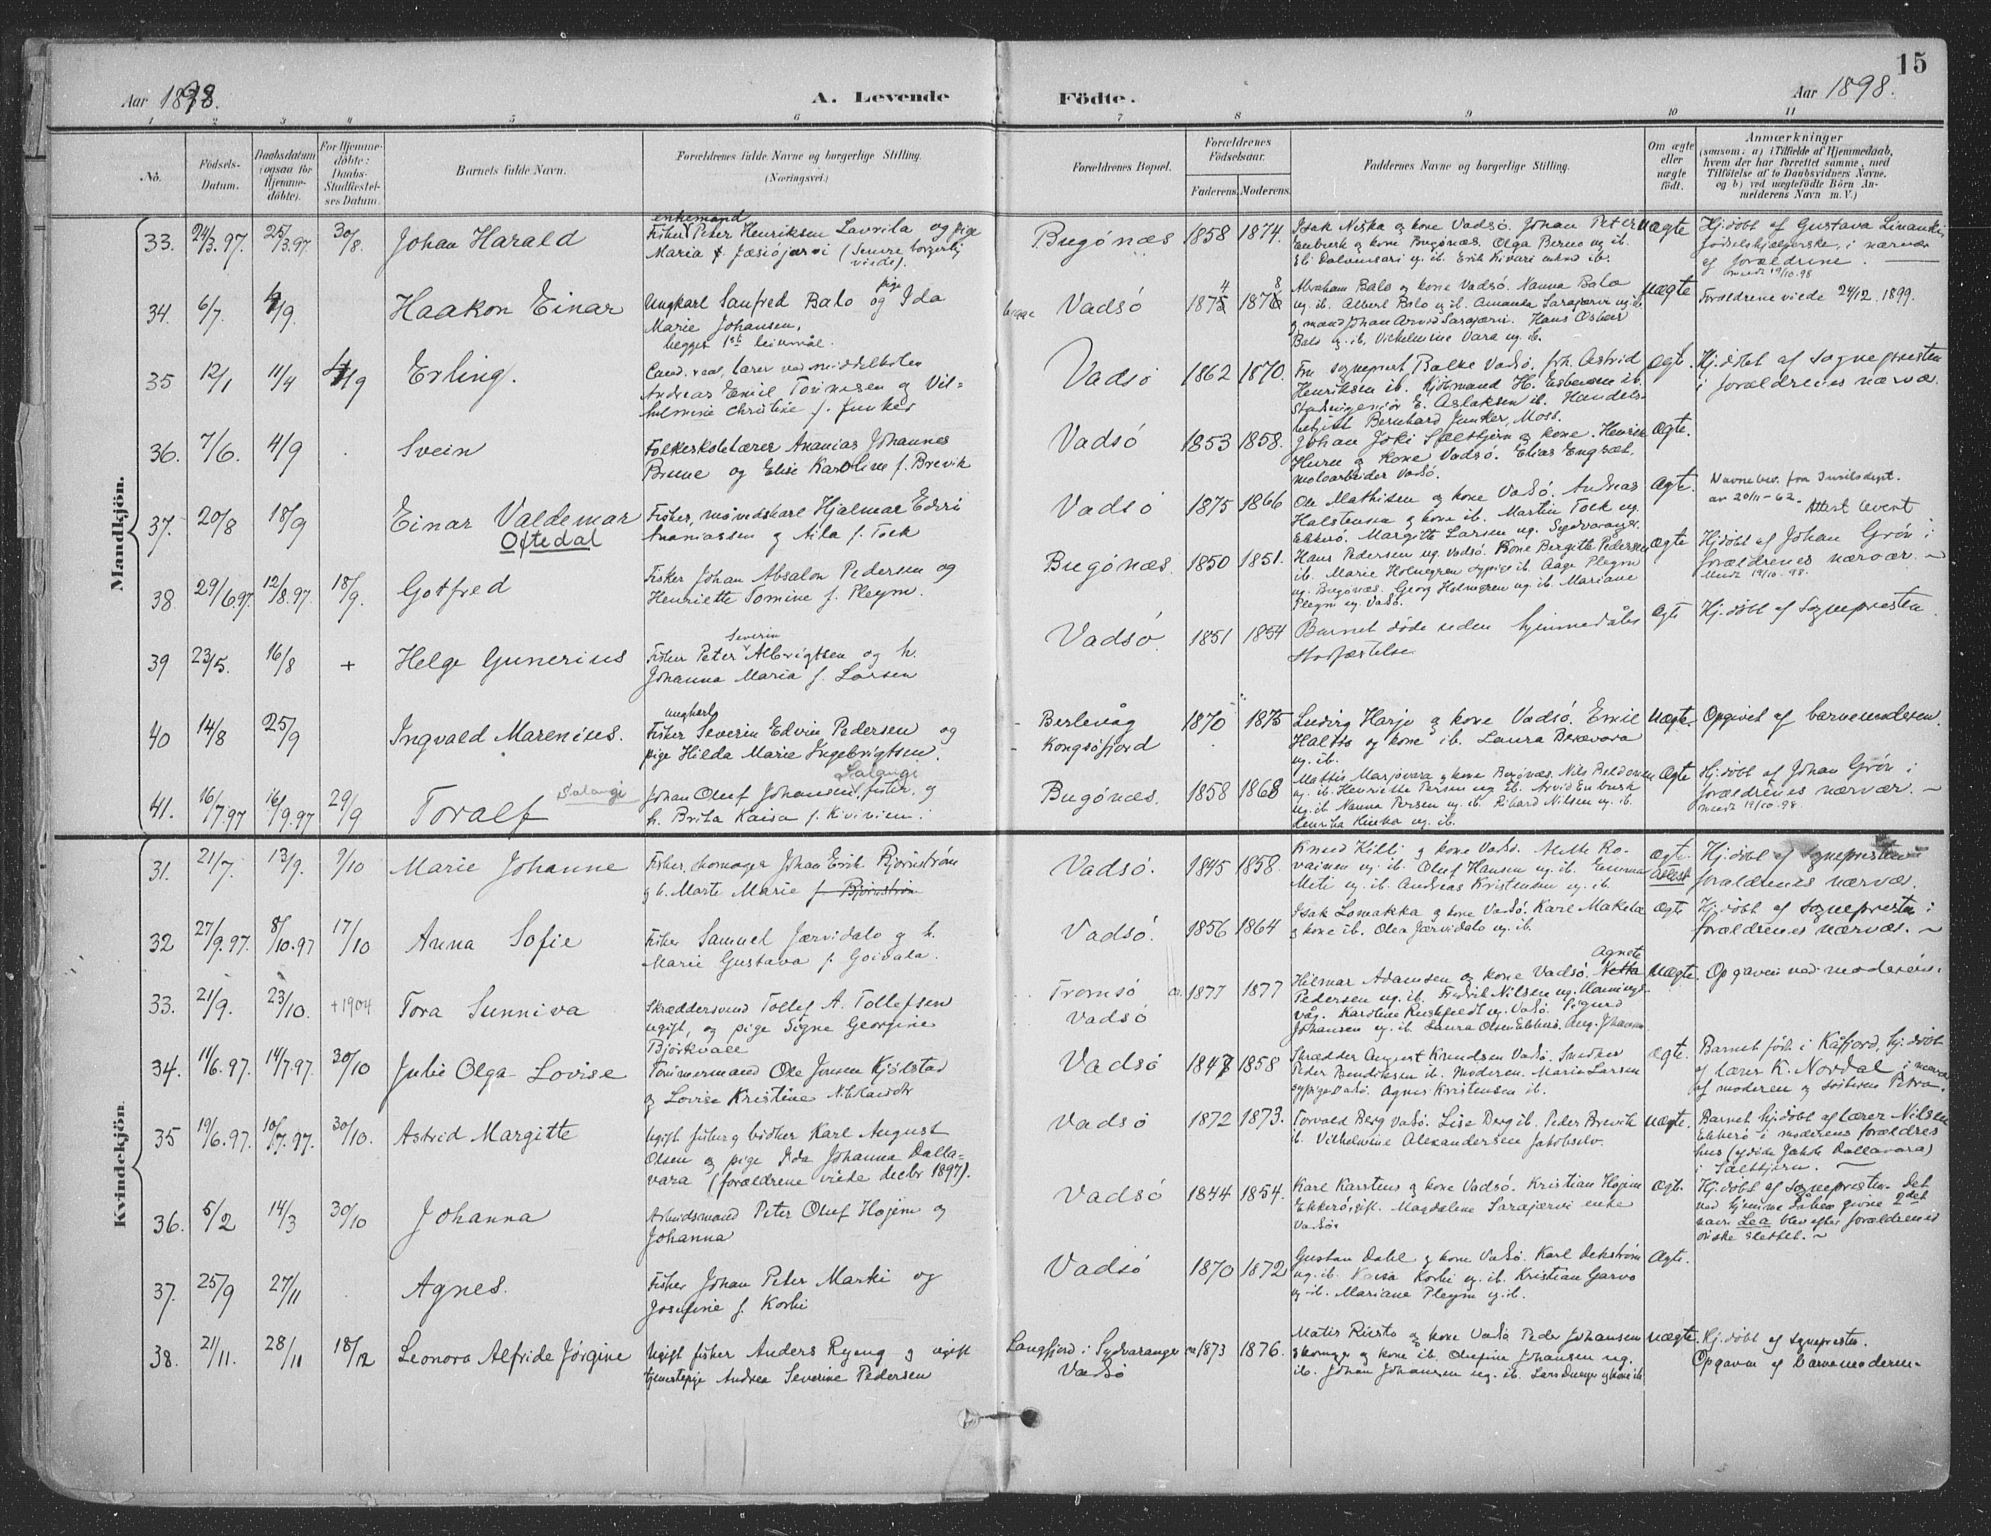 15
Aar 1898.
A. Levende
Födte.
Aar 1898.
1 2 3 4 5 6 7 8 9 10 11
No.
Födsels-Datum.
Daabsdatum (ogsaa for Hjemme-döbte).
For Hjemme-döbte: Daabs-Stadfæstel-ses Datum.
Barnets fulde Navn.
Forældrenes fulde Navne og borgerlige Stilling. (Næringsvei.)
Forældrenes Bopæl.
Forældrenes Födselsaar.
Faderens. Moderens.
Faddernes Navne og borgerlige Stilling.
Om ægte eller uægte födt.
Anmærkninger
(saasom: a) i Tilfælde af Hjemmedaab, hvem der har forrettet samme, med Tilföielse af to Daabsvidners Navne, og b) ved uægtefödte Börn An-melderens Navn m. V.)
Mandkjön.
33. 24/3.97. 25/3.97 30/8. Johan Harald
enkemand
Fisker Peter Henriksen Lavrila og pige
Maria f. Jæsiöjærvi (Senere borgerlig
viede).
Bugönæs 1858 1874.
Isak Niska og kone Vadsö. Johan Peter
Enbusk og kone Bugönæs. Olga ug. ib.
uægte
Hj.döbt af Gustava
födselshjælperske, i nærvær
af forældrene.
19/10.98
34. 6/7. /9. Haakon Einar
Ungkarl Sanfred Balo og pige Ida
Marie Johansen,
begges 1ste leiermål.
begge Vadsö 1874 1878
Abraham Balo og kone Vadsö. Nanna Balo
ug. ib. Albert Balo ug. ib. Amanda Sarajærvi ug. ib.
Johan Arvid Sarajærvi. Hans Oskar
Balo ug. ib. Vilhelmine Vara ug. ib.
uægte
Forældrene viede 24/12. 1899.
35 12/1 11/4 /9 Erling.
Cand. real, lærer ved middelskolen
Andreas Emil Tönnesen og Vil-
helmine Christine f. Junker
Vadsö 1862 1870.
Fru sogneprest Balke Vadsö. frk. Astrid
Henriksen ib. Kjöbmand H. Esbensen ib.
Stadsingeniör E. Aslaksen ib. Handels-
betjent Bernhard Junker, Moss.
ægte.
Hj.döbt af sognepresten
i forældrenes nærvær.
36. 7/6. 4/9 Svein
Folkeskolelærer Ananias Johannes
Brune og Elise Karoline f. Brevik
Vadsö 1853 1858.
Johan Joki og kone. Henrik
og kone Vadsö. Elias
moloarbeider Vadsö.
ægte.
37. 20/8 18/9 Einar Valdemar
Oftedal
Fisker, Hjalmar Edvi
Ananiassen og Nila f. Tolk
Vadsö 1875 1866
Ole Mathisen og kone Vadsö. Andreas
Halstensen og kone ib. Martin Tolk ug.
Ekkerö. Margitt Larsen ug. Sydvaranger.
ægte.
Navnebev. fra Justisdept.
av 20/11-62. Attest levert
38. 29/6.97. 12/8.97. 18/9. Gotfred
Fisker Johan Absalon Pedersen og
Henriette Somine f. Pleym.
Bugönæs. 1850 1851.
Hans Pedersen ug. Vadsö. Kone Bergitte Pedersen
ib. Marie Holmgren ib. Aage Pleym
ug. Bugönæs. Georg Holmgren ug. ib. Mariane
Pleym ug. Vadsö.
ægte
Hjdöbt af Johan Grön i
forældrenes nærvær.
19/10.98.
39 23/5. 16/8 + Helge Gunerius
Fisker Peter Severin Albrigtsen og h.
Johanna Maria f. Larsen
Vadsö. 1851 1854
Barnet döde inden hjemmedåbs
stadfæstelse.
ægte
Hj.döbt af Sognepresten
40 14/8 25/9 Ingvald Marenius.
ungkarl
Fisker Severin Edvin Pedersen og
pige Hilda Marie Ingebrigtsen.
Berlevåg
Kongsöfjord
1870 1875
Ludvig Harju og kone Vadsö. Emil
og kone ib. Laura
ug. ib.
uægte.
Opgivet af barnemoderen.
41. 16/7.97 16/9.97 29/9 Toralf Salangi
Salangi
Johan Oluf Johansen, fisker, og
h. Brita Kaisa f. Kivivien.
Bugönæs. 1858 1868
og kone Bugönæs. Nils
ug. ib. Henriette ug. ib. Arvid Enbusk
ug. ib. Nanna Persen ug. ib. Rikard Nilsen ug. ib.
ug. ib.
ægte
Hj.döbt af Johan Grön i
forældrenes nærvær.
19/10.98
Kvindekjön.
31. 21/7. 13/9. 9/10 Marie Johanne
Fisker, Johan Erik Björnström
og h. Marte Marie f. Björnström
Vadsö. 1845 1858.
Knud Killi og kone Vadsö.
ug. ib. Oluf Hansen ug. ib. Emma
ug. ib. Andreas Kristensen ug. ib.
ægte.
Attest
Hj.döbt af sognepresten i
forældrenes nærvær.
32 27/9.97. 8/10.97 17/10 Anna Sofie
Fisker Samuel Jærvidalo og h.
Marie Gustava f. Goidala.
Vadsö. 1856 1864
Isak Lomakka og kone Vadsö. Karl Makela
og kone ib. Olea Jærvidalo ug. ib.
ægte
Hj.döbt af sognepresten i
forældrenes nærvær.
33. 21/9. 23/10. +1904 Tora Sunniva
Skræddersvend Tollef A. Tollefsen
ugift, og pige Signe Georgine
Björkvall
Tromsö
Vadsö
1877 1877
Agnete
Hilmar Adamsen og kone Vadsö. Netta
Pedersen ug. ib. Fredrik Nilsen ug.
Karoline ug. Vadsö. Sigurd
Johansen ug. ib. Laura Olsen Ekkerö. Aug. Johansen
uægte.
Opgaven ved moderen.
34. 11/6.97. 14/7.97. 30/10 Julie Olga Lovise
Tömmermand Ole Jensen Kjölstad
og Lovise Kristine
Vadsö 1847 1858
Skrædder August Knudsen Vadsö. Snedker
Peder Bendiksen ib. Moderen. Maria Larsen
Vadsö. Agnes Kristensen ib.
ægte.
Barnet föd i Kåfjord, hj.döbt
af lærer K. Nordal i nærvær
af moderen og Petra.
35 19/6.97. 10/7.97. 30/10. Astrid Margitte
Ugift fisker og Karl August
Olsen og pige Ida Johanna Dalla-
vara (forældrene viede decbr 1897).
Vadsö 1872 1873.
Torvald Berg Vadsö. Lise Berg ib. Peder Brevik
ib. Vilhelmine Alexandersen Jakobselv.
uægte.
Barnet hj.döbt af lærer Nilsen
Ekkerö i moderens forældres
hus Dallavara)
i Saltbjörn.
36. 5/2 14/3 30/10 Johanna
Arbeidsmand Peter Oluf Höjem og
Johanna
Vadsö 1844 1854.
Karl Karstens og kone Vadsö. Kristian Höjem
Ekkerö, gift. Magdalene Sarajærvi enke
Vadsö.
ægte.
Hj.döbt af sognepresten. Det
ved hjemmedåben givne 2det
navn Lea blev efter forældrenes
önske slettet.
37. 25/9 27/11 Agnes.
Fisker Johan Peter Marki og
Josefine f. Korbi
Vadsö 1870 1872
Gustav Dahl og kone Vadsö. Karl
ug. ib. Kaisa Korbi ug. ib. Kristian Garvo
ug. ib. Mariane Pleym ug. ib.
ægte.
38. 21/11. 28/11 18/12 Leonora Alfride Jörgine
Ugift fisker Anders Ryeng og ugift
tjenestepige Andrea Severine Pedersen
Langfjord i Sydvaranger
Vadsö
1873 1876.
Matis Riesto og kone Vadsö Peder Johansen
og kone ib. Olufine Johansen ug.
ib. Johan Johansen ug. ib. Lars og kone ib
uægte.
Hj.döbt af sognepresten.
Opgaven af barnemoderen.